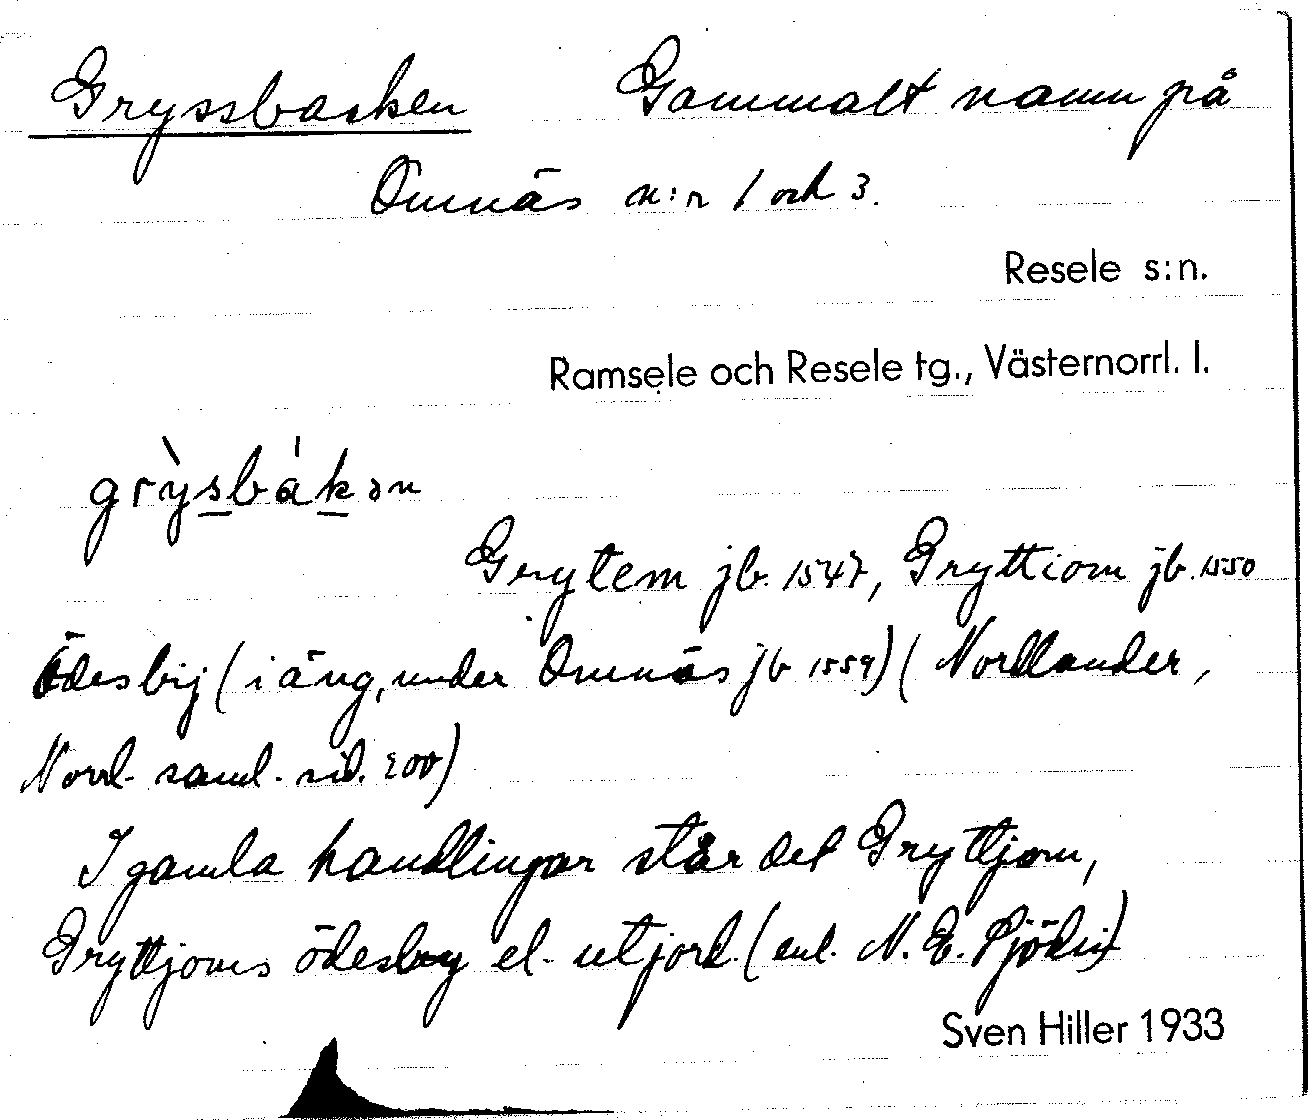 Gryssbacken Gammalt namn på
Omnäs n:r 1 och 3.
Resele s:n.
Ramsele och Resele tg., Västernorrl. l.
grỳsbákən
Grytem jb. 1547, Gryttiom jb. 1550
Ödesbij (i äng, under Omnäs jb 1559) (Nordlander,
Norrl. saml. sid. 200)
I gamla handlingar står det Gryttjom,
Gryttjoms ödesby el. utjord. (enl. N. E.
Sven Hiller 1933